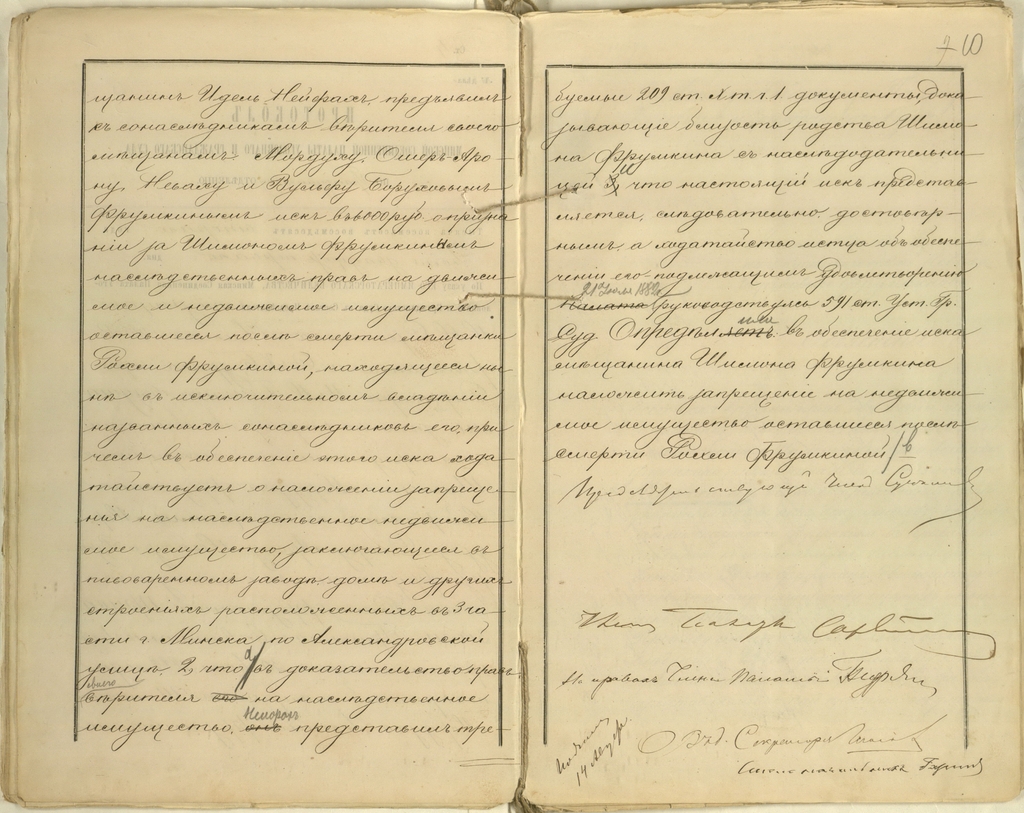 щанинъ Идель Нейфахъ, предъявилъ
къ сонаслѣдникамъ вѣрителя своего
мѣщанамъ: Мордуху, Ошеръ-Аро-
ну, Неваху и Вульфу Боруховымъ
Фрумкинымъ искъ въ 6000 руб. о призна-
ніи за Шимономъ Фрумкинымъ
наслѣдственныхъ правъ на движи-
мое и недвижимое имущество
оставшееся послѣ смерти мѣщанки
Рохли Фрумкиной, находящееся ны-
нѣ въ исключительномъ владѣніи
названныхъ сонаслѣдниковъ его, при-
чемъ въ обезпеченіе этого иска хода-
тайствуетъ о наложеніи запреще-
нія на наслѣдственное недвижи-
мое имущество, заключающееся въ
пивоваренномъ заводѣ, домѣ и другихъ
строеніяхъ расположенныхъ въ 3 ча-
сти г. Минска, по Александровской
улицѣ. 2, что а/ въ доказательство правъ
своего
вѣрителя на наслѣдственное
имущество, представилъ тре-
70
буемые 209 ст. X т. ч. 1 документы, дока-
зывающіе близость родства Шимо-
на Фрумкина съ наслѣдодательни-
цей и что настоящій искъ представ-
ляется, слѣдовательно, достовѣр-
нымъ, а ходатайство истца объ обезпе-
ченіи его подлежащимъ удовлетворенію
Палата руководствуясь 591 ст. Уст. Гр.
Суд. Опредѣляетъ: въ обезпеченіе иска
мѣщанина Шимона Фрумкина
наложить запрещеніе на недвижи-
мое имущество оставшееся послѣ
смерти Рохли Фрумкиной
Членъ
Члена Палаты
О. Об. Секретаря